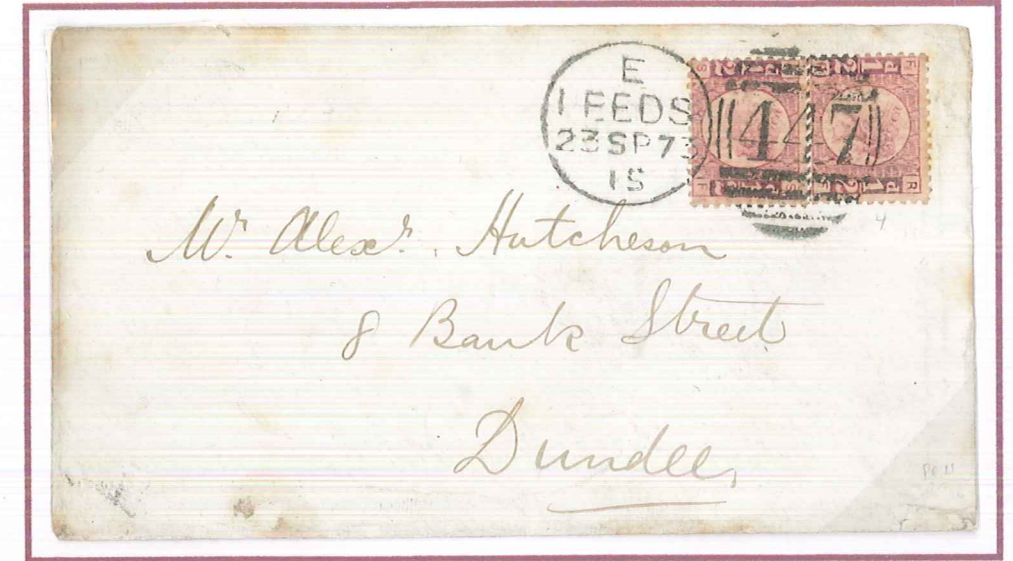 E
LEEDS
23 SP 73
1S
447
Mr. Alexr. Hutcheson
8 Bank Street
Dundee,
4